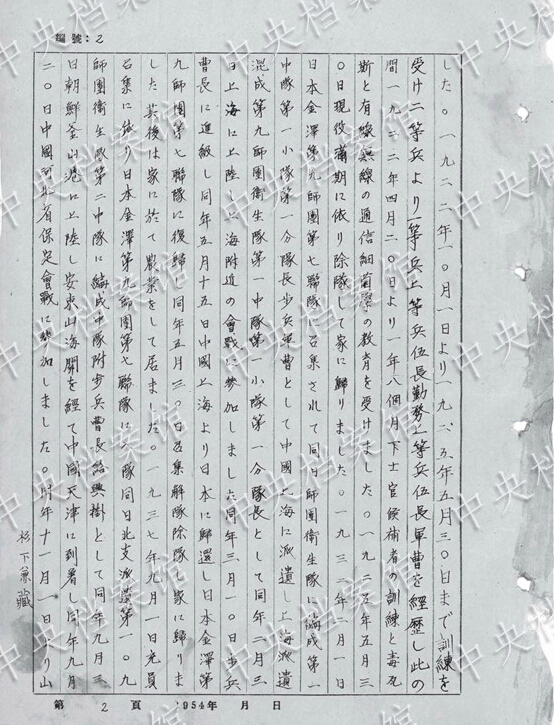 編號：2
した。一九二二年一〇月一日より一九二五年五月三〇日まで訓練を
受け二等兵より一等兵上等兵伍長勤務上等兵伍長軍曹を経歴し此の
間一九二二年四月二〇日より一年八個月下士官候補者の訓練と毒瓦
斯と有線無線の通信細菌学の教育を受けました。一九二五年五月三
〇日現役満期に依り除隊して家に歸りました。一九三二年二月一日
日本金澤第九師團第七聯隊に召集されて同日師團衛生隊に編成第一
中隊第一小隊第一分隊長歩兵軍曹として中國上海に派遣し上海派遣
混成第九師團衛生隊第一中隊第一小隊第一分隊長として同年二月三
日上海に上陸し上海附近の會戰に参加しました同年三月一〇日歩兵
曹長に進級し同年五月十五日中國上海より日本に歸還し日本金澤第
九師團第七聯隊に復歸し同年五月三〇日召集解隊除隊し家に歸りま
した其後は家に於て農業をして居ました。一九三七年九月一日充員
召集に依り日本金澤第九師團第七聯隊に入隊同日北支派遣第一〇九
師團衛生隊第二中隊に編成中隊附歩兵曹長給與掛として同年九月三
日朝鮮釜山港に上陸し安東山海關を経て中國天津に到着し同年九月
二〇日中國河北省保定會戰に参加しました。同年十一月一日より山
杉下兼藏
第 2 頁 1954年 月 日
中央档案馆